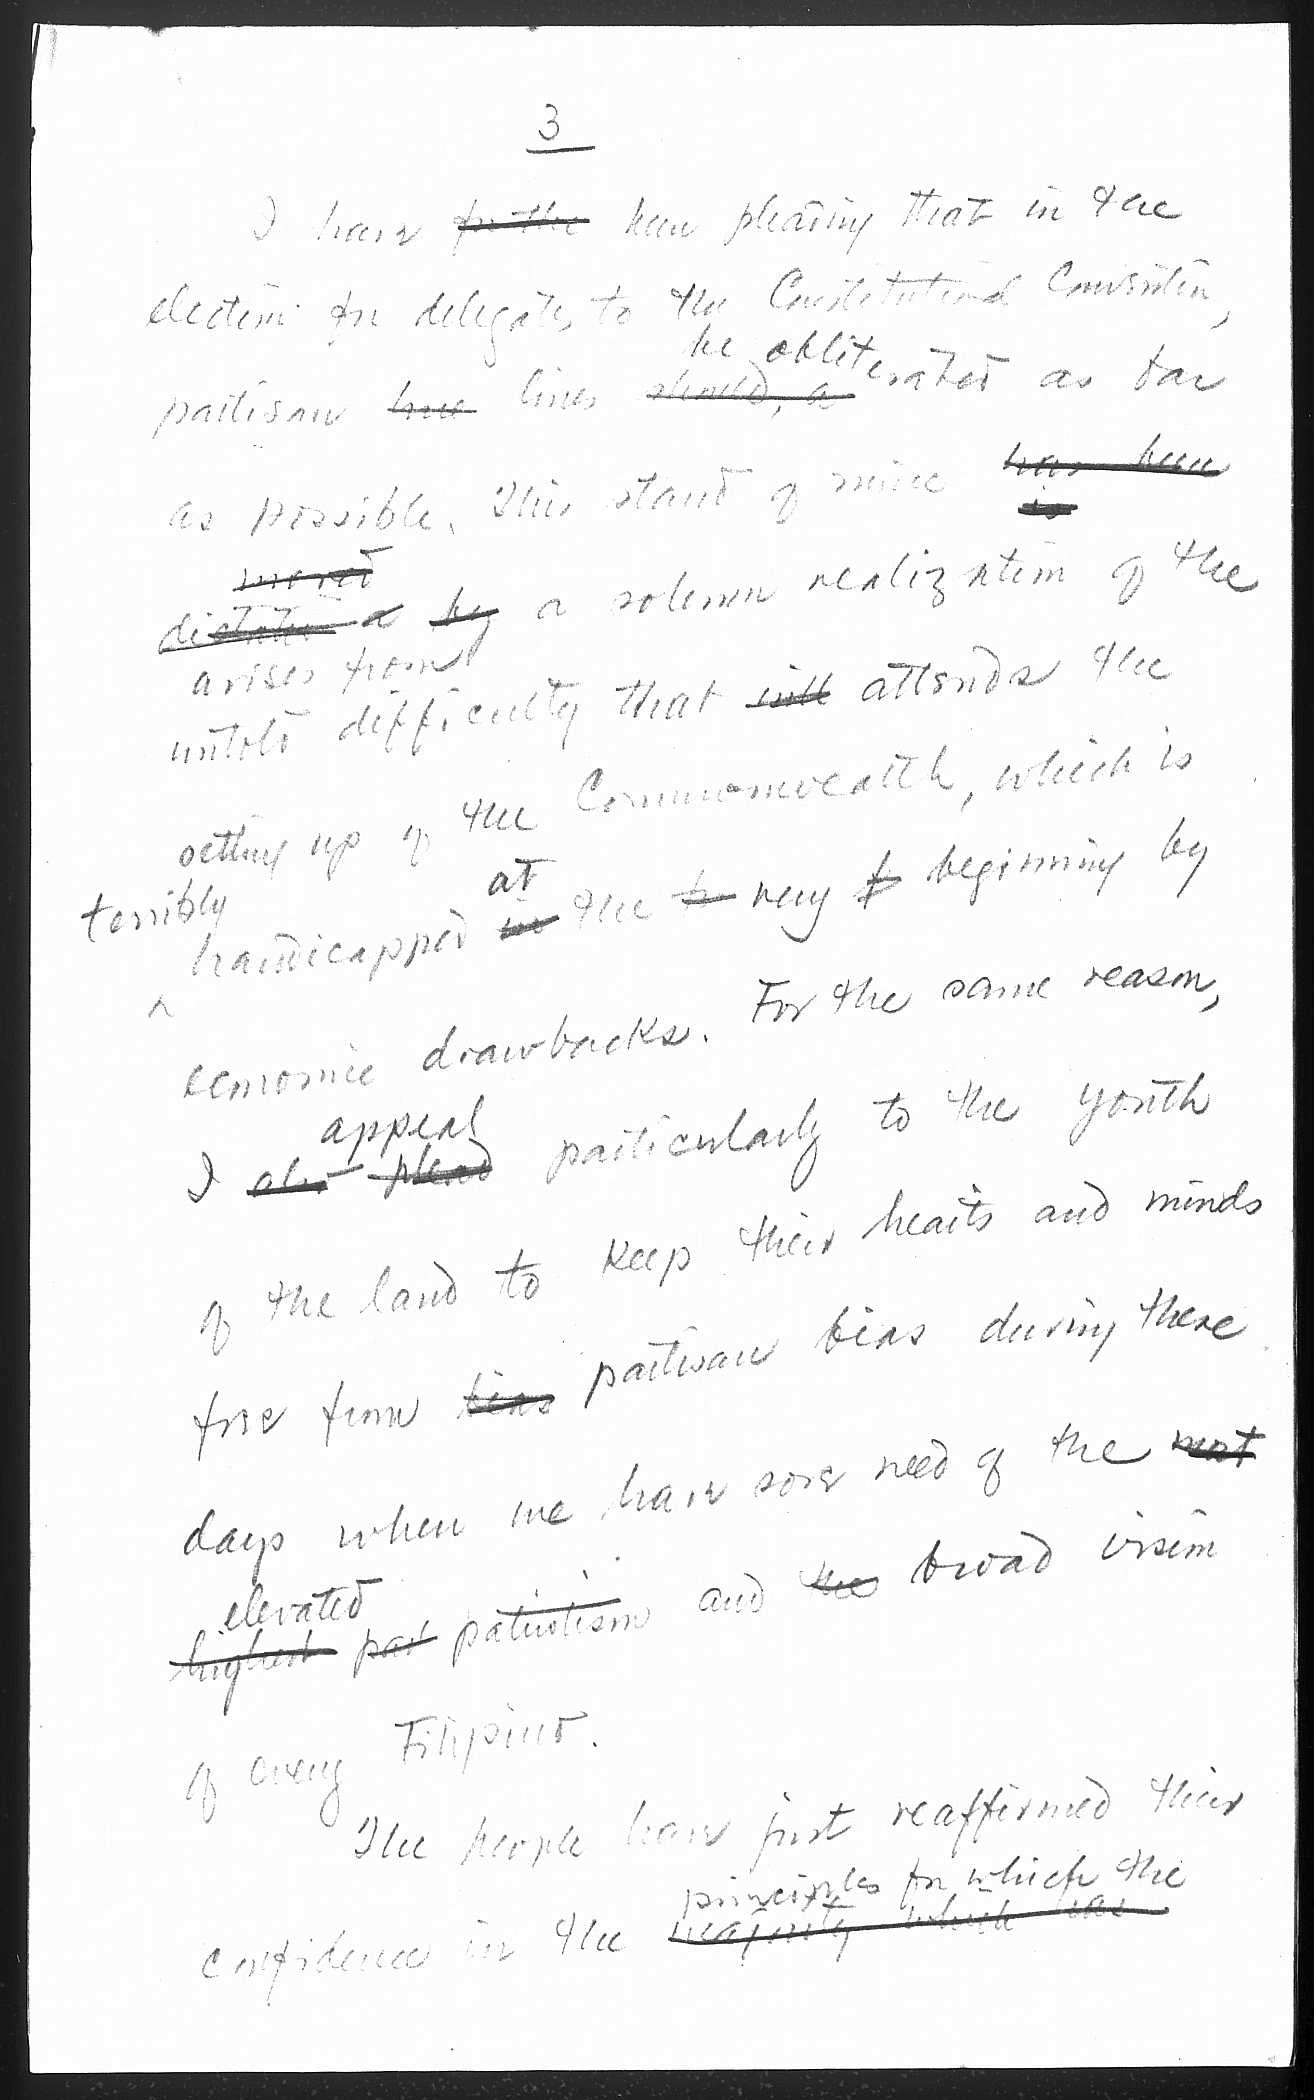 3
I have for the been pleading that in the
election for delegates to the Constitutional Convention,
be obliterated as far
partisan line lines should, a
as possible. This stand of mine has been
is
moved
dictated a by a solemn realization of the
arises from
untold difficulty that will attends the
setting up of the Commonwealth, which is
terribly at
handicapped in the b very b beginning by
^
economic drawbacks. For the same reason,
appeal
I also plead particularly to the youth
of the land to keep their hearts and minds
free from bias partisan bias during these
days when we have sore need of the most
elevated
highest pat patriotism and the broad vision
of every Filipino.
The people have just reaffirmed their
principles for which the
confidence in the majority which has